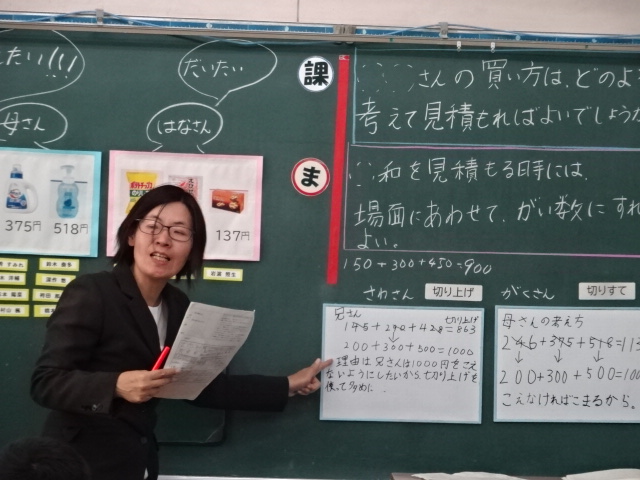 たい!!!
だいたい
母さん
はなさん
375円
518円
137円
課
さんの買い方は、どのよ
考えて見積もればよいでしょうか
ま
和を見積もる時には、
場面にあわせて、がい数にすれ
よい。
150+300+450=900
さわさん
切り上げ
兄さん
切り上げ
200+300+500=1000
理由は、兄さんは1000円をこえ
ないようにしたいから、切り上げを
使って多めに、
がくさん
切りすて
母さんの考え方
200+300+500=100
こえなければこまるから。